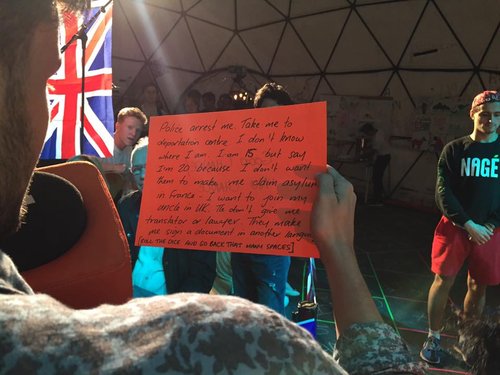 Police arrest me. Take me to
deportation centre. I don't know
where I am. I am 15 but say
I'm 20 because I don't want
them to make me claim asylum
in France. I want to join my
uncle in UK. The don't give me
translator or lawyer. They make
me sign a document in another
[ROLL THE DICE AND GO BACK THAT MANY SPACES]
NAGÉ